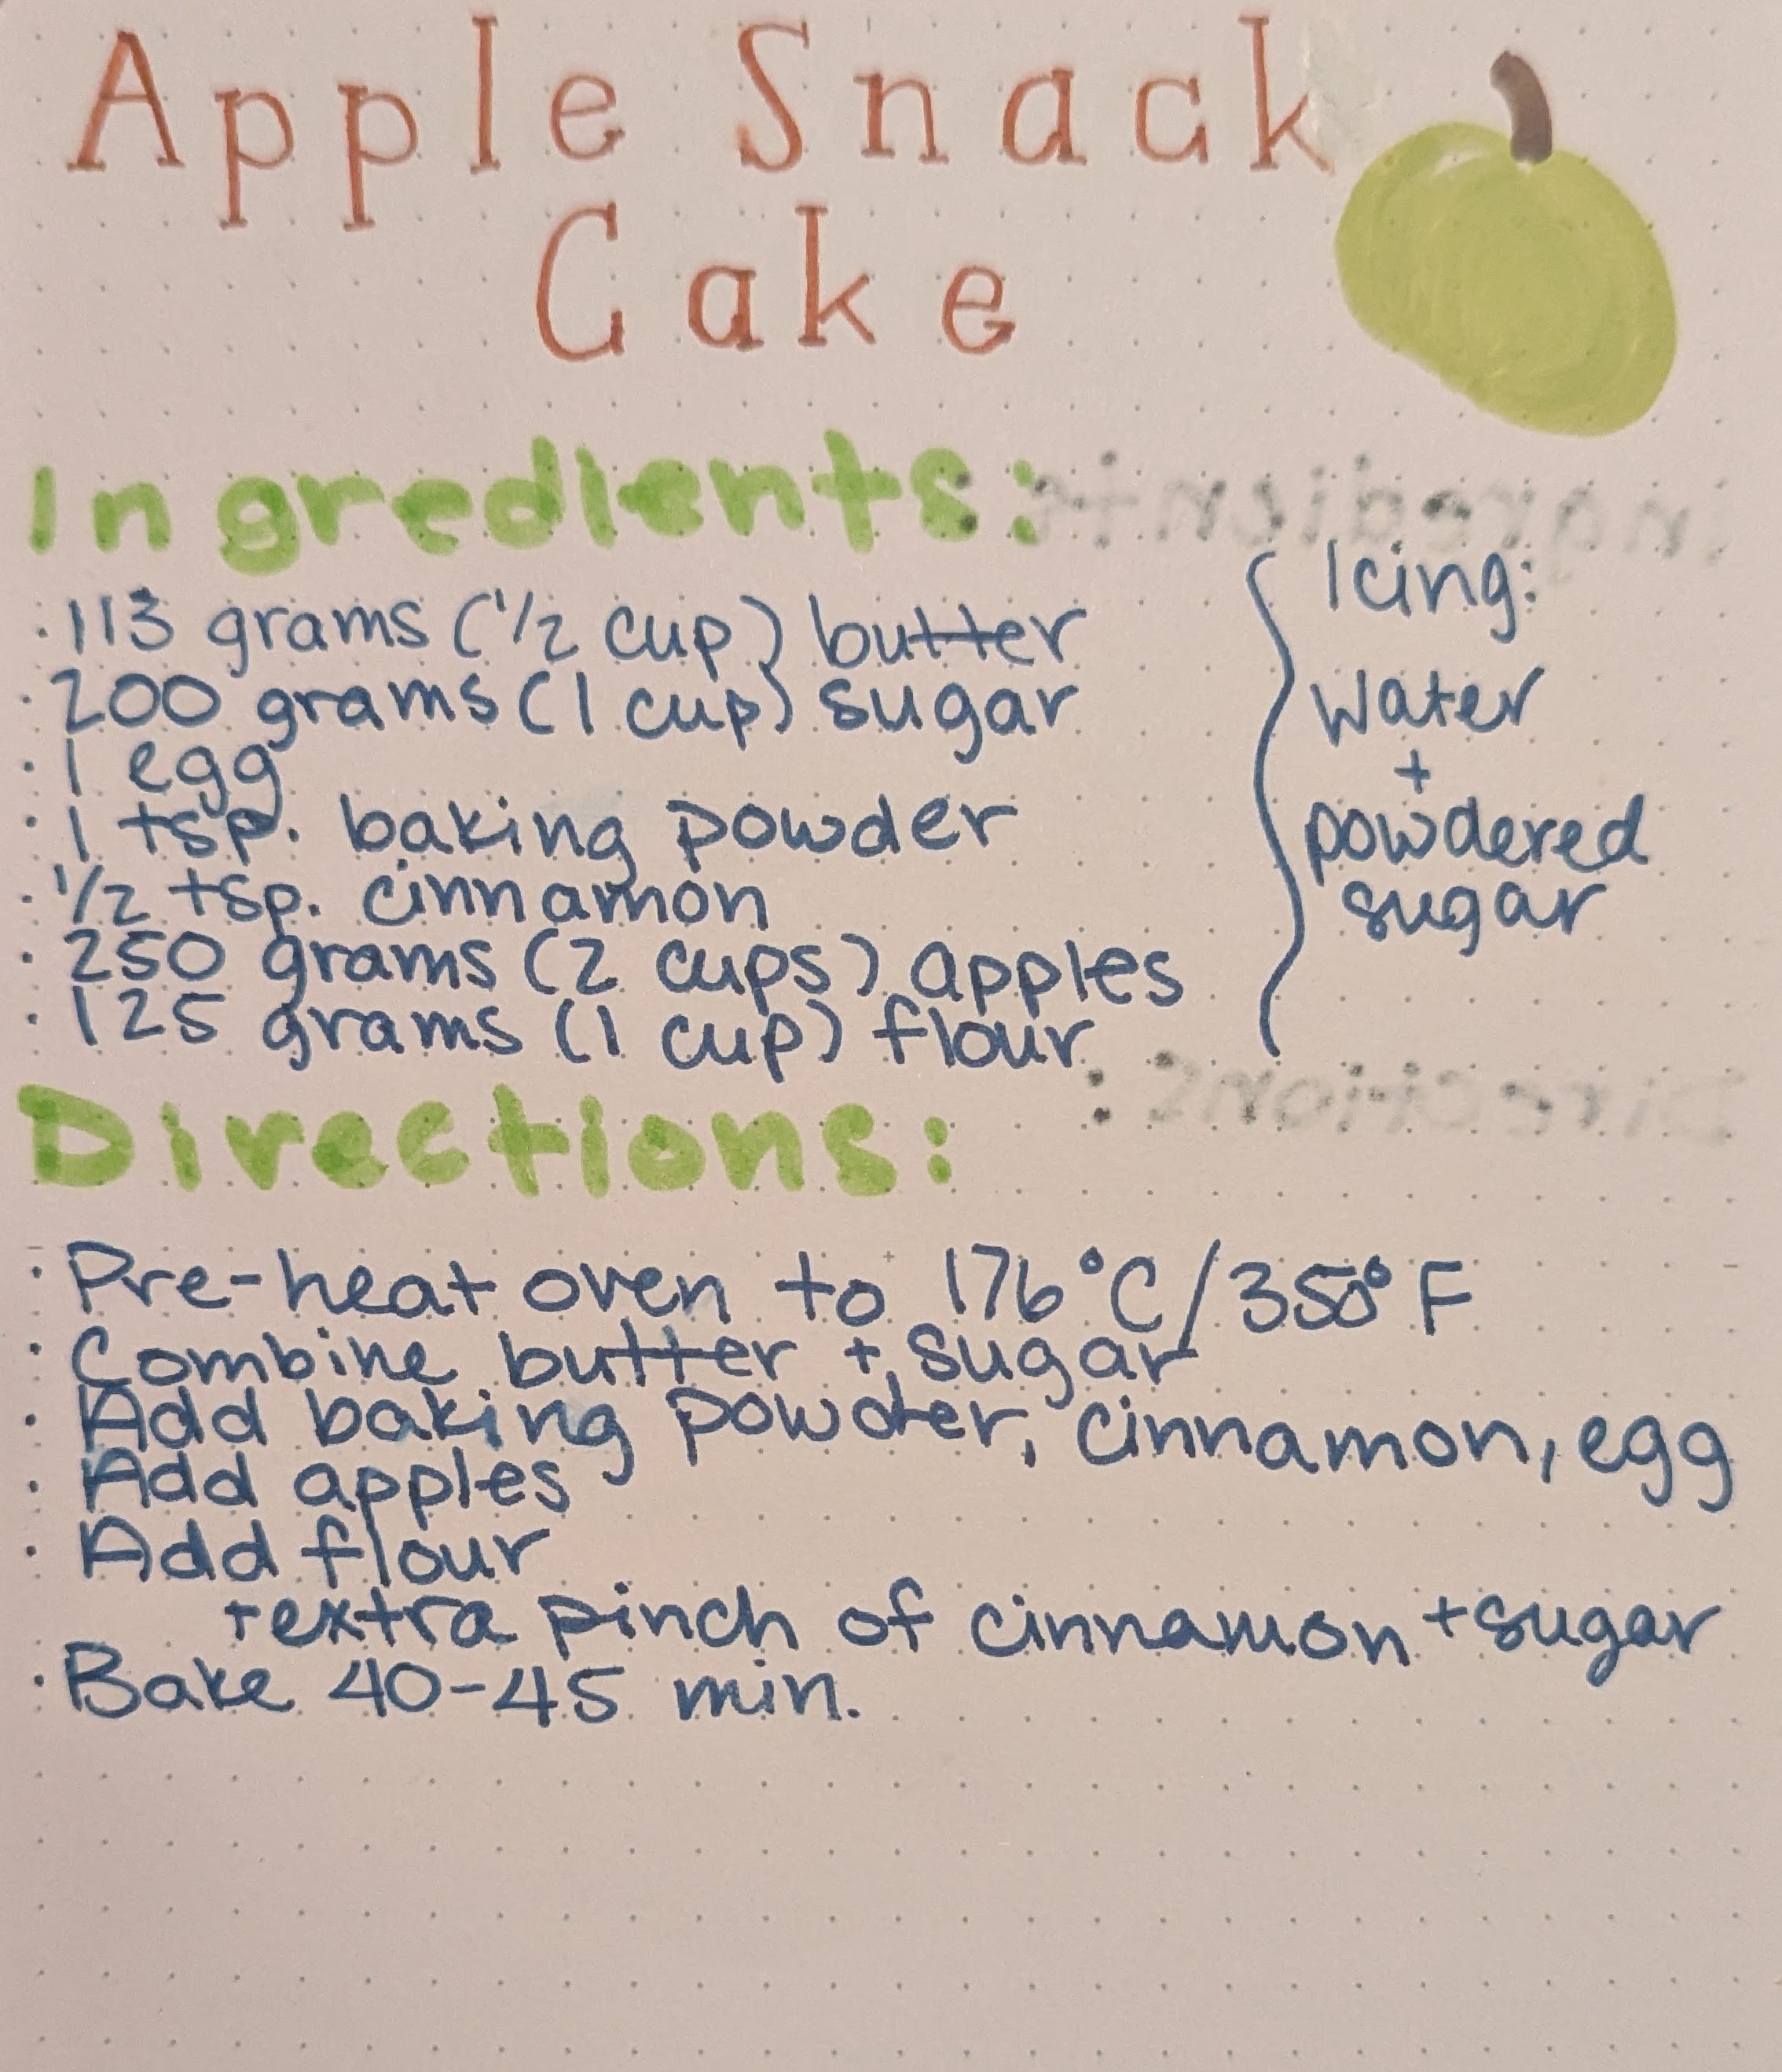 Apple Snack
Cake
Ingredients:
· 113 grams (1/2 cup) butter
· 200 grams (1 cup) sugar
· 1 egg
· 1 tsp. baking powder
· 1/2 tsp. cinnamon
· 250 grams (2 cups) apples
· 125 grams (1 cup) flour
Icing:
Water
+
powdered
sugar
Directions:
· Pre-heat oven to 176°C/350°F
· Combine butter + sugar
· Add baking powder, cinnamon, egg
· Add apples
· Add flour
+extra pinch of cinnamon + sugar
· Bake 40-45 min.